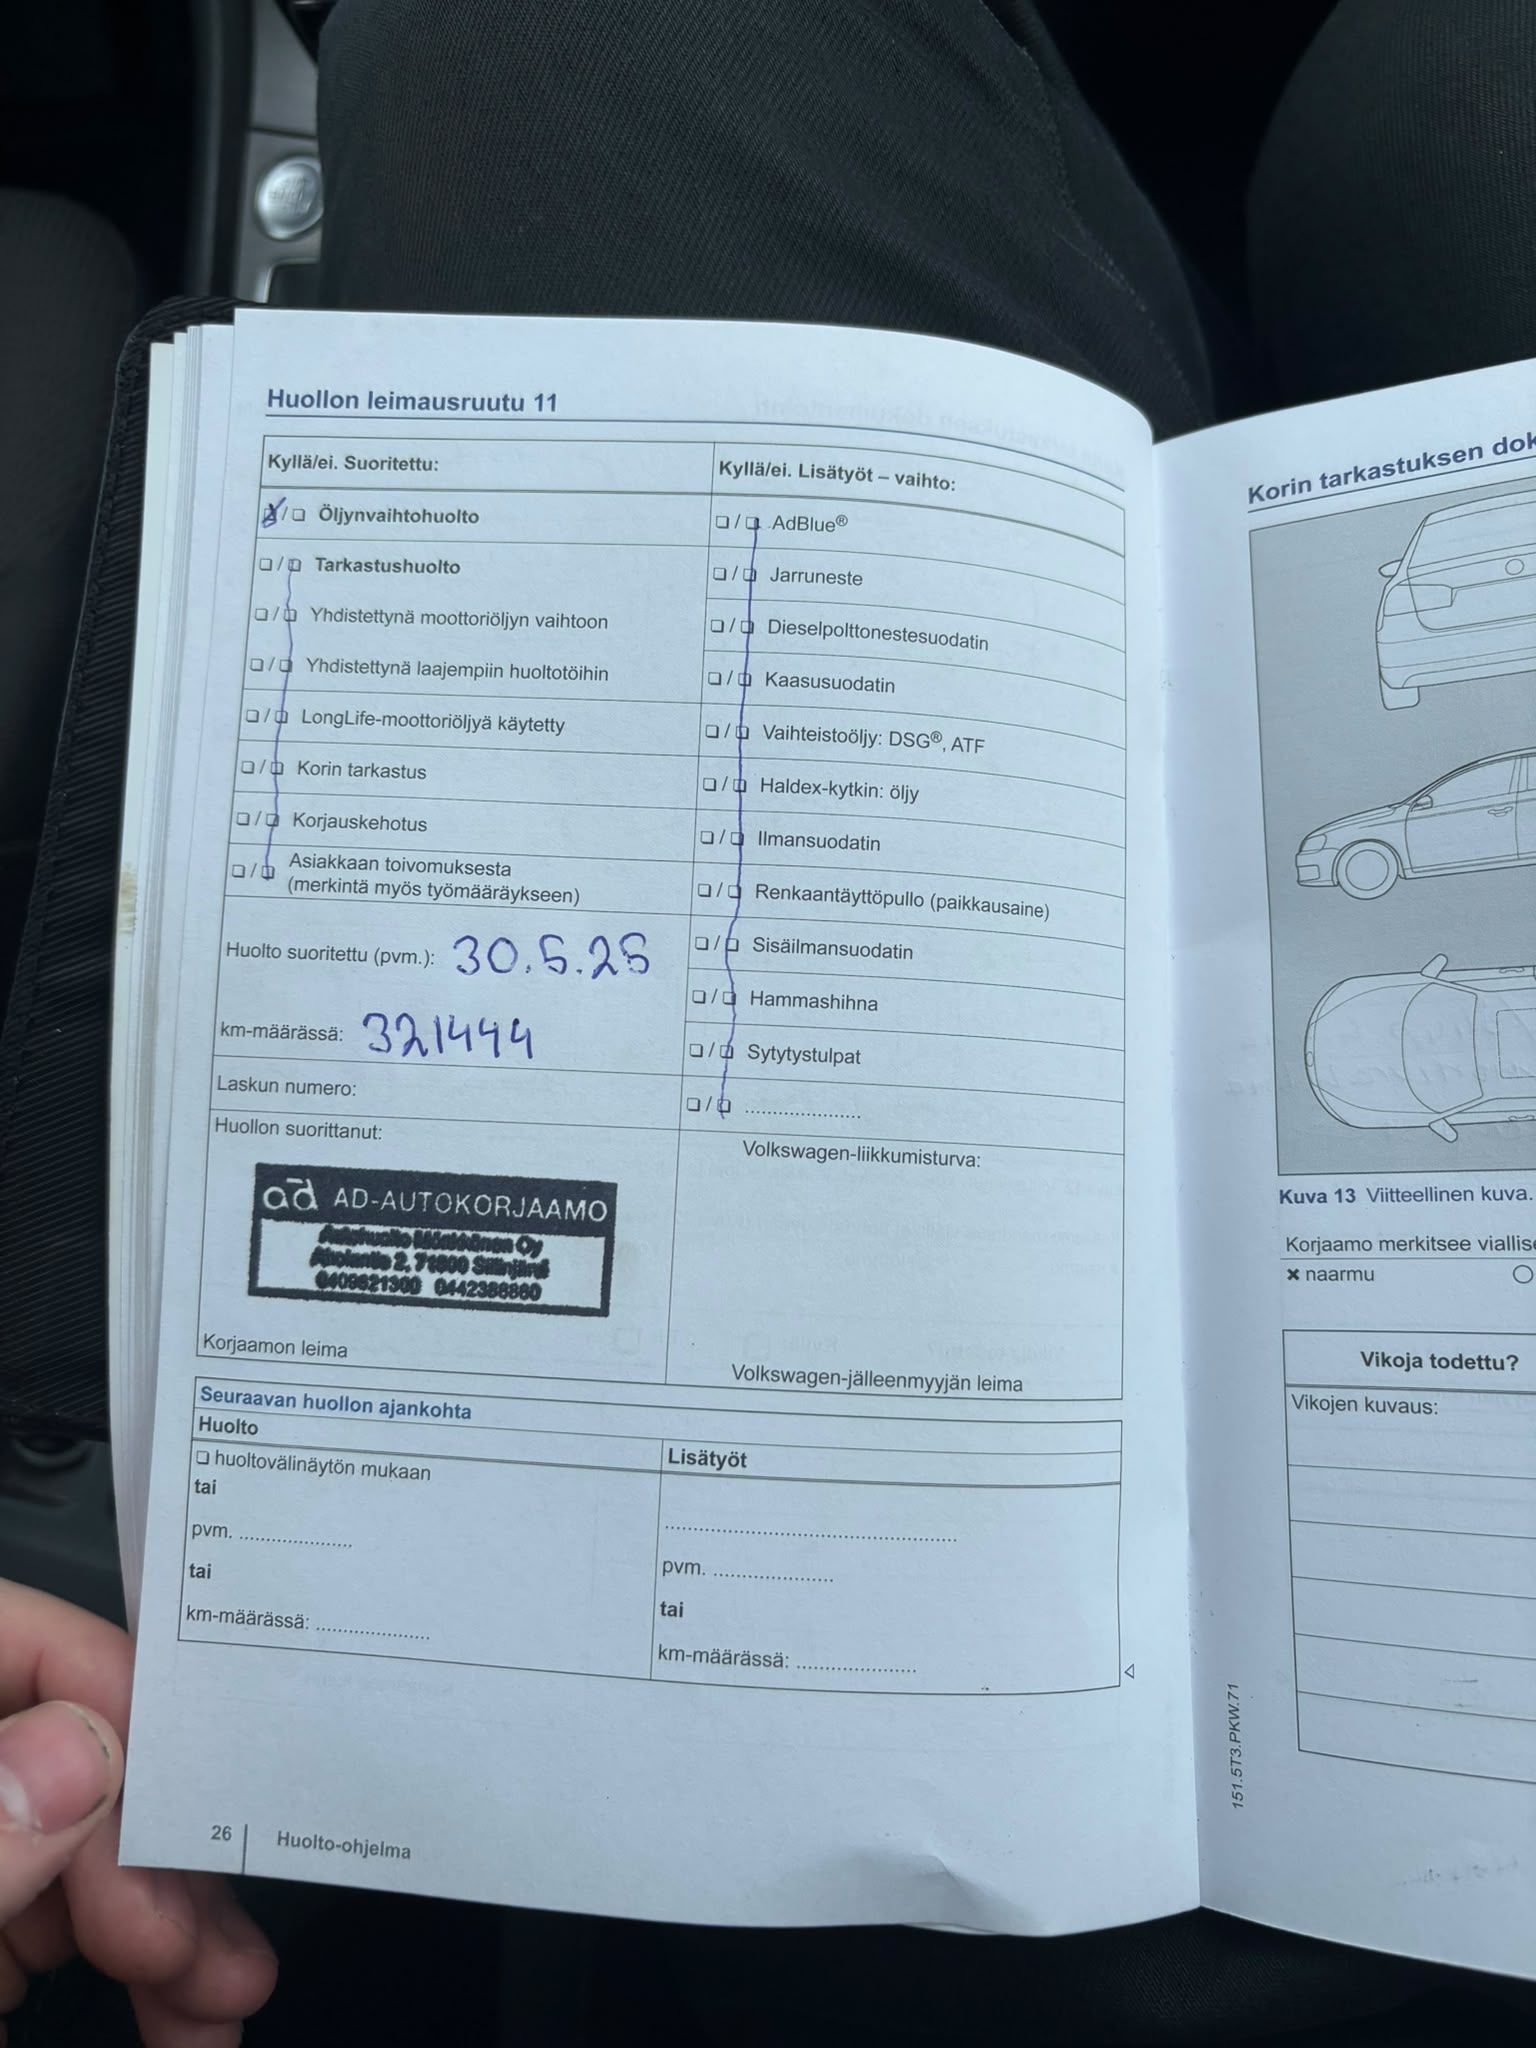 Huollon leimausruutu 11
Kyllä/ei. Suoritettu:
Öljynvaihtohuolto
Tarkastushuolto
Yhdistettynä moottoriöljyn vaihtoon
Yhdistettynä laajempiin huoltotöihin
LongLife-moottoriöljyä käytetty
Korin tarkastus
Korjauskehotus
Asiakkaan toivomuksesta
(merkintä myös työmääräykseen)
Huolto suoritettu (pvm.): 30.5.25
km-määrässä: 321444
Laskun numero:
Huollon suorittanut:
ad AD-AUTOKORJAAMO
Autohuolto Oy
2, 71800 Siilinjärvi
Korjaamon leima
Kyllä/ei. Lisätyöt – vaihto:
AdBlue®
Jarruneste
Dieselpolttonestesuodatin
Kaasusuodatin
Vaihteistoöljy: DSG®, ATF
Haldex-kytkin: öljy
Ilmansuodatin
Renkaantäyttöpullo (paikkausaine)
Sisäilmansuodatin
Hammashihna
Sytytystulpat
.....................
Volkswagen-liikkumisturva:
Volkswagen-jälleenmyyjän leima
Seuraavan huollon ajankohta
Huolto
huoltovälinäytön mukaan
tai
pvm. .....................
tai
km-määrässä: .....................
Lisätyöt
.....................................................
pvm. .....................
tai
km-määrässä: .....................
26
Huolto-ohjelma
Korin tarkastuksen dok
Kuva 13 Viitteellinen kuva.
Korjaamo merkitsee viallise
× naarmu
Vikoja todettu?
Vikojen kuvaus:
151.5T3.PKW.71